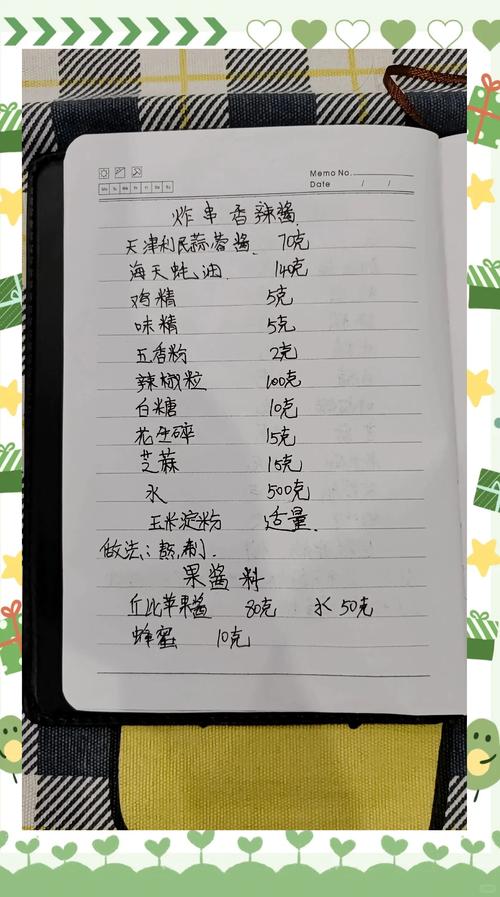 Memo No.
Mo Tu We Th Fr Sa Su
Date / /
炸串香辣酱
天津利民蒜蓉酱 70克
海天蚝油 140克
鸡精 5克
味精 5克
五香粉 2克
辣椒粒 100克
白糖 10克
花生碎 15克
芝蔴 15克
水 500克
玉米淀粉 适量.
做法:熬制.
果酱料
丘比苹果酱 80克 水 50克
蜂蜜 10克